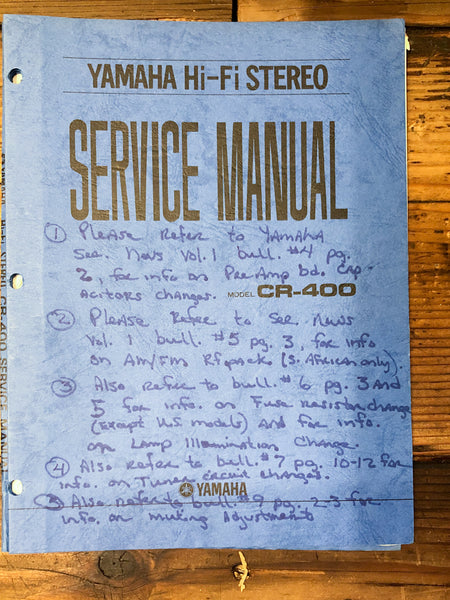 YAMAHA Hi-Fi STEREO
SERVICE MANUAL
① Please Refer to YAMAHA
Ser. News Vol. 1 bull. #4 pg.
2, for info on Pre Amp bd. cap-
acitors changes.
MODEL CR-400
② Please Refer to Ser. News
Vol. 1 bull. #5 pg. 3, for info
on AM/FM RF pack (S. African only).
③ Also Refer to bull. #6 pg. 3 and
5 for info. on Fuse resistor change
(Except U.S models) and for info.
on Lamp Illumination change.
④ Also Refer to bull. #7 pg. 10-12 for
info. on Tuner circuit changes.
YAMAHA
⑤ Also refer to bull #9 pg. 2-3 for
info. on muting Adjustments
CR-400 SERVICE MANUAL